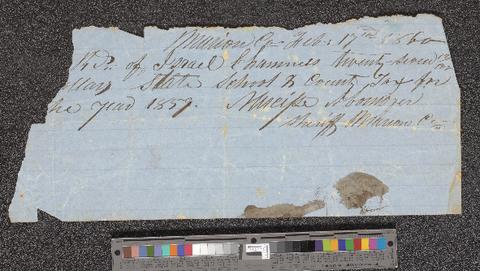 Marion Co Feb. 17th 1860
Rd. of Israel Chamness twenty seven
dollars State School & County Tax for
the year 1859.
Sheriff Marion Co